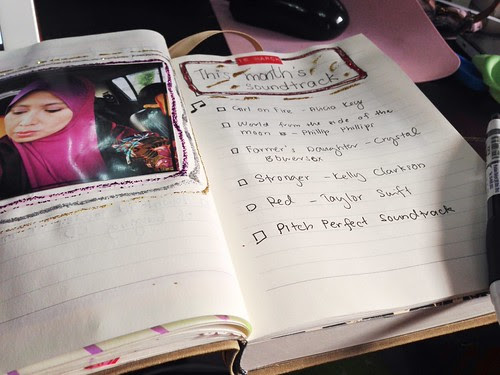 This month's
soundtrack
Girl on Fire - Alicia Keys
World from the side of the
moon - Phillip Phillips
Farmer's Daughter - Crystal
Bowersox
Stronger - Kelly Clarkson
Red - Taylor Swift
Pitch Perfect Soundtrack